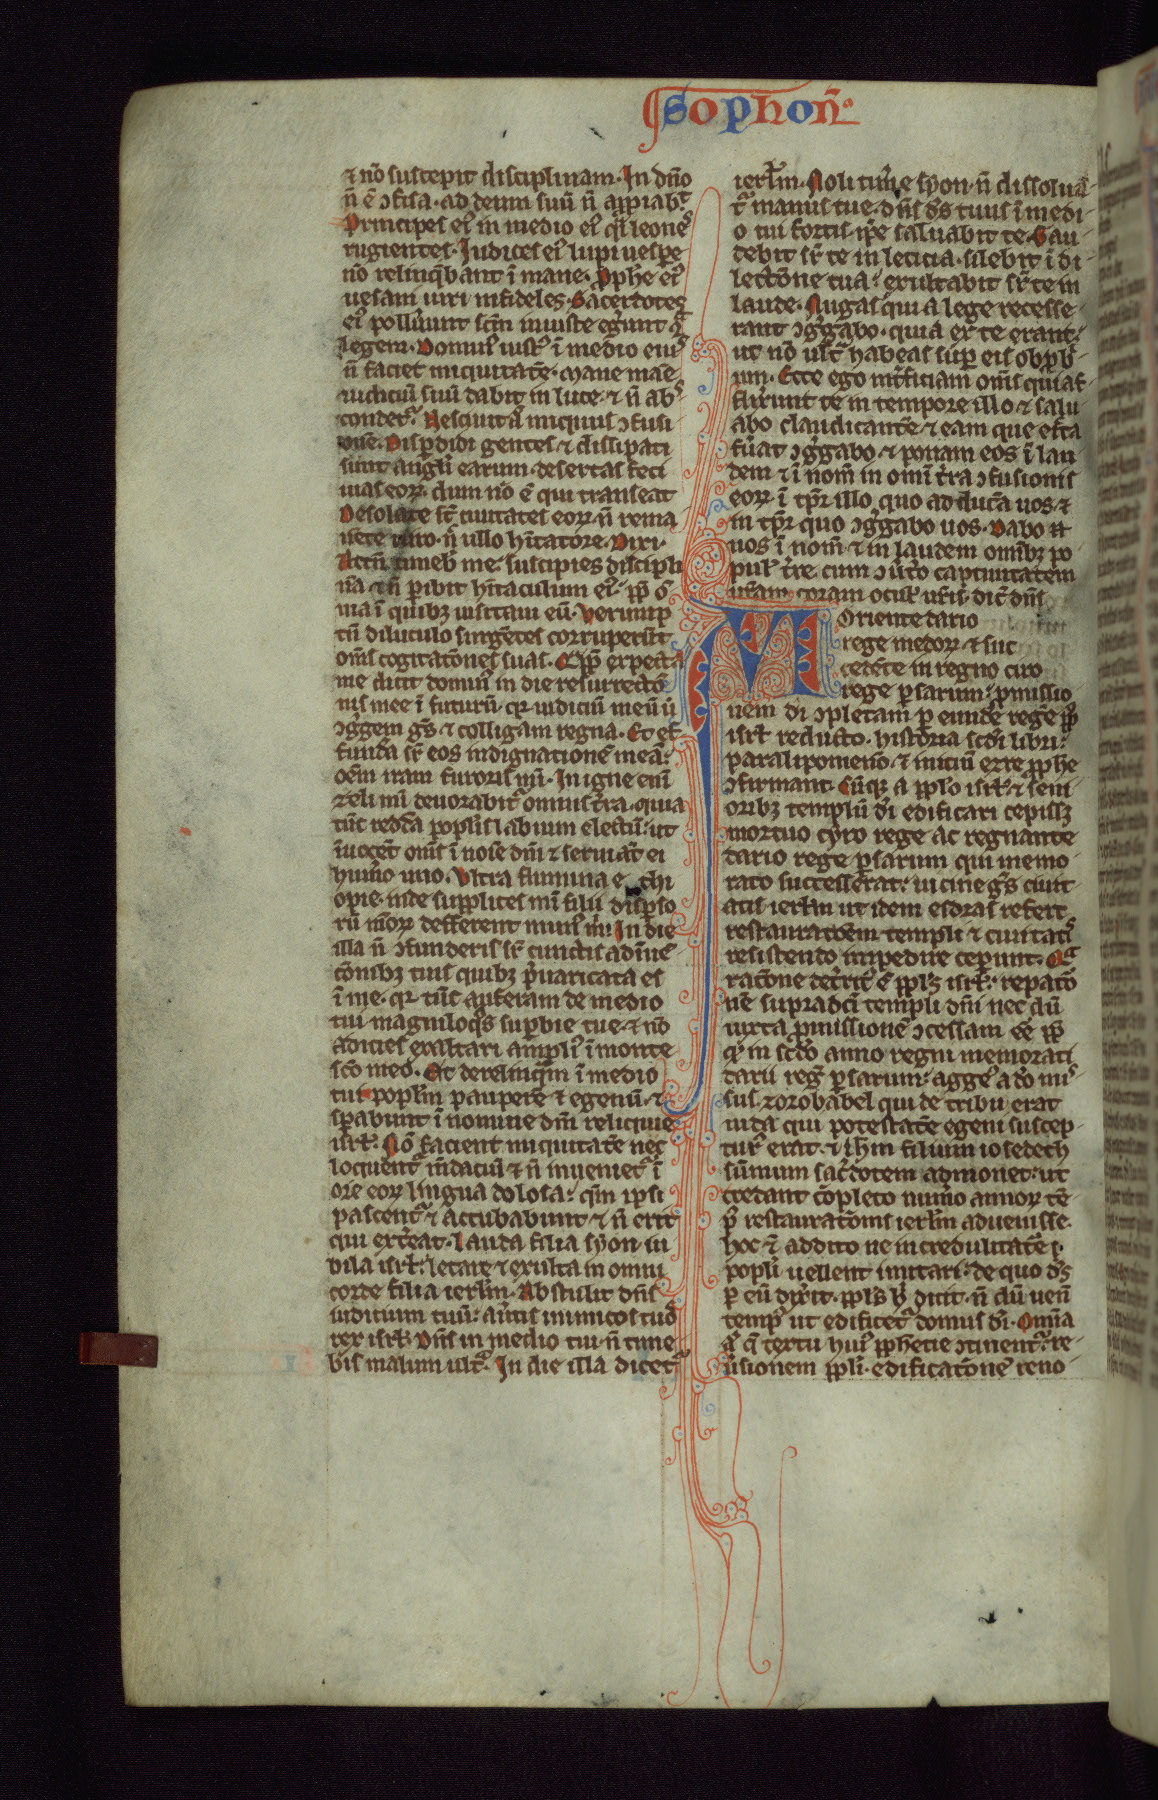 Sophoñ
⁊ nō suscepit disciplinam. In dñō
n̄ ē ↄfisa. ad deum suū n̄ appiab᷑.
Principes ei᷒ in medio ei᷒ q̄si leones
rugientes. Iudices ei᷒ lupi uespe
nō relinq̄bant ī mane. Prophe ei᷒
uesani uiri infideles. Sacerdotes
ei᷒ polluūnt scm̄ iniuste eḡunt ꝯ̄
legem. Domin᷒ iust᷒ ī medio eius
n̄ faciet iniquitatē. Mane mane
iudiciū suū dabit in luce. ⁊ n̄ abs
condet᷑. Nesciuit aū iniquus ↄfusi
onē. Disꝑdidi gentes ⁊ dissipati
sunt anguli earum. desertas feci
uias eoꝝ. dum nō ē qui transeat
Desolate st̄ ciuitates eoꝝ. n̄ rema
nēte uiro. n̄ ullo hītatore. Dixi.
Attn̄ timeb᷒ me. suscipies discipli
nā. ⁊ n̄ ꝑibit hītaculum ei᷒. ꝓpt̄ oī
nia ī quibꝫ uisitaui eū. Verump
tn̄ diluculo surgētes corruperūt
om̄s cogitatōnes suas. Q̄ꝓpt̄ expecta
me dicit domin᷒ in die resurrectō
nis mee ī futurū. qꝛ iudiciū meū ut
ↄgregem gn̄s ⁊ colligam regna. Et ef
fundā sr̄ eos indignationē meā.
om̄em iram furoris mī. In igne enī
zeli mī deuorabit᷑ omnis tr̄a. quia
tūc reddā popl̄is labium electū. ut
īuocēt om̄s ī noīe dn̄i ⁊ seruiāt ei
hum̄o uno. Vltra flumina e thi
opie. inde supplices mī filii disꝑso
rū mōꝝ defferent mun᷒ m̄. In die
illa n̄ ↄfunderis sr̄ cunctis adīuē
cōnibꝫ tuis quibꝫ p̄uaricata es
ī me. qꝛ tūc auferam de medio
tui magniloq̄s suꝑbie tue. ⁊ nō
adicies exaltari ampli᷒ ī monte
scō meo. Et derelinquā ī medio
tui popl̄m pauperē ⁊ egenū. ⁊
sꝑabunt ī nomine dn̄i reliquie
isrl̄. Nō facient iniquitatē nec
loquent᷑ m̄daciū ⁊ n̄ inueniet᷑ ī
ore eoꝝ lingua dolosa. qm̄ ipsi
pascent᷑ ⁊ accubabunt ⁊ n̄ erit
qui ext̄reat. Lauda filia syon iu
bila isrl̄. letare ⁊ exulta in omni
corde filia ierl̄m. Abstulit dn̄s
iudicium tuū. au̇tit inimicos tuos
rex isrl̄ dn̄s in medio tui. n̄ time
bis malum ult᷑. In die illa dicet᷑
ierl̄m. Noli tim̄e syon. n̄ dissoluā
t᷑ manus tue. dn̄s ds̄ tuus ī medi
o tui fortis. ip̄e saluabit te. Gau
debit sr̄ te in leticia. silebit ī di
lectōne tua. exultabit sr̄ te in
laude. Nugas qui a lege recesse
rant ↄgḡabo. quia ex te erant.
ut nō ult᷑ habeas suꝑ eis obprb̄i
um. Ecce ego int̄ficiam om̄s qui af
flix̄unt te in tempore illo. ⁊ salu
abo claudicantē. ⁊ eam que eiecta
fūat ↄgḡabo. ⁊ ponam eos ī lau
dem ⁊ ī nom̄ in om̄i tr̄a ↄfusionis
eoꝝ. ī tp̄r illo quo adducā uos. ⁊
in tp̄r quo ↄgḡabo uos. Dabo n̄
uos ī nom̄ ⁊ in laudem omībꝫ po
pul᷒ tr̄e cum ↄūto captiuitatem
ur̄am coram ocul᷒ ur̄is. dic̄ dn̄s
Oriente dario
rege medoꝝ. ⁊ suc
cedēte in regno ciro
rege ꝑsarum. ꝓmissio
nem di ↄpletam ꝑ eundē regē pp̄
isrl̄ reducto. historia scd̄i libri
paralipomenō. ⁊ iniciū ezre ꝓphe
ↄfirmant. Cūqꝫ a ppl̄o isrl̄. ⁊ seni
oribꝫ templū dī edificari cepissꝫ
mortuo cyro rege ac regnante
dario rege ꝑsarum qui memo
rato successerat. uicine gn̄s ciuit
atis ierl̄m ut idem esdras refert
restauratōem templi ⁊ ciuitatis
resistendo impedire ceꝑunt. Qͣ
racōne det̄rit᷒ ē ppl̄s isrl̄. reparō
nē supradc̄i templi dn̄i nec dū
iuxta ꝓmissionē ↄcessam eē ꝓpt̄
qd̄ in scd̄o anno regni memorati
darii reḡ ꝑsarum. agge᷒ a do mis
sus. zorobabel qui de tribu erat
iuda qui potestatē egeni suscep
tur᷒ erat. ⁊ ihm̄ filium iosedech
sūmum sac̄dotem admonet. ut
credant cōpleto num̄o annoꝝ tē
p̄ restauratōnis ierl̄m aduenisse.
hoc ⁊ addito ne incredulitatē ꝑ
popli uellent imitari. de quo ds̄
ꝑ eū dix̄it. ppl̄s h᷒ dicit. n̄ dū uen̄
temp᷒ ut edificet᷑ domus di. Omīa
aū q̄ tertu hui᷒ ꝓphetie ↄtinent᷑. re
ūsionem ppl̄i. edificatōnē reno